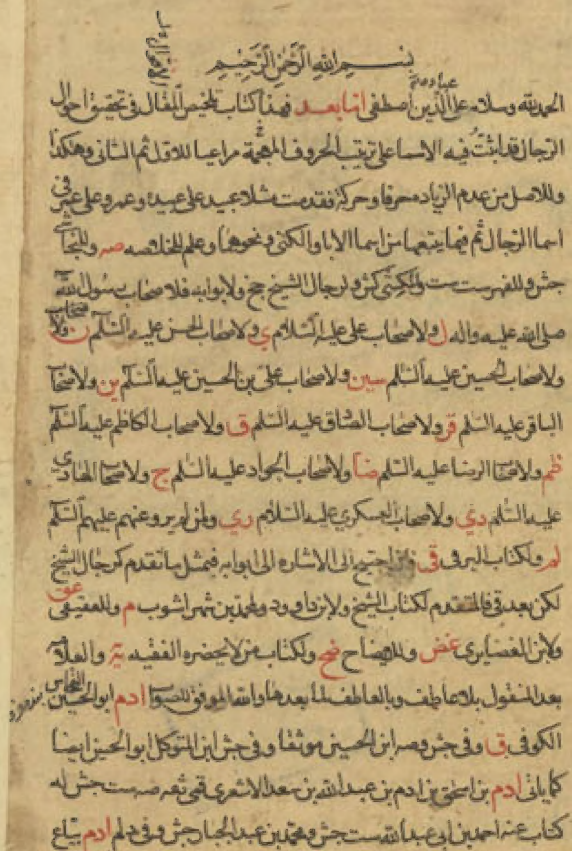 بسم الله الرحمن الرحيم
الحمد لله وسلام على عباده الذين اصطفى اما بعد فهذا كتاب تلخيص المقال فى تحقيق احوال
الرجال قد اثبتُّ فيه الاسماء على ترتيب الحروف المبهمة مراعيا للاول ثم الثانى وهكذا
وللاصل من عدم الزياده حرفا وحركة فقدمت مثلا عبيد على عبيدة وعمرو على عمر فى
اسماء الرجال ثم فيما يتبعها من اسماء الابا والكنى ونحوها وعلم للخلاصه صه وللنجاشى
جش وللفهرست ست وللكشى كش ولرجال الشيخ جخ ولابوابه فلاصحاب رسول الله
صلى الله عليه واله ل ولاصحاب على عليه السلام ي ولاصحاب الحسن عليه السلم ن
ولاصحاب الحسين عليه السلم سين ولاصحاب على بن الحسين عليه السلم ين ولاصحاب
الباقر عليه السلم قر ولاصحاب الصادق عليه السلم ق ولاصحاب الكاظم عليه السلم
ظم ولاصحاب الرضا عليه السلم ضا ولاصحاب الجواد عليه السلم ج ولاصحاب الهادى
عليه السلم دي ولاصحاب العسكري عليه السلام ري ولمن لم يرو عنهم عليهم السلم
لم ولكتاب البرقى قى فان احتيج الى الاشاره الى ابوابه فبمثل ما تقدم كرجال الشيخ
لكن بعد قى فالمتقدم لكتاب الشيخ ولابن داوود ولمحمد بن شهراشوب م وللعقيقى عق
ولابن الغضايرى غض وللايضاح ضح ولكتاب من لا يحضره الفقيه يه والعلامة
بعد المنقول بلا عاطف وبالعاطف لما بعدها والله الموفق للصواب ادم ابو الحسين النخاس
الكوفى ق وفى جش وصه ابن الحسين موثقا وفى جش ابن المتوكل ابو الحسين ايضا
كما ياتى ادم بن اسحق بن ادم بن عبد الله بن سعد الاشعرى قمى ثقه صه ست جش له
كتاب عنه احمد بن ابى عبد الله ست جش ومحمد بن عبد الجبار جش وفى د لم ادم بياع